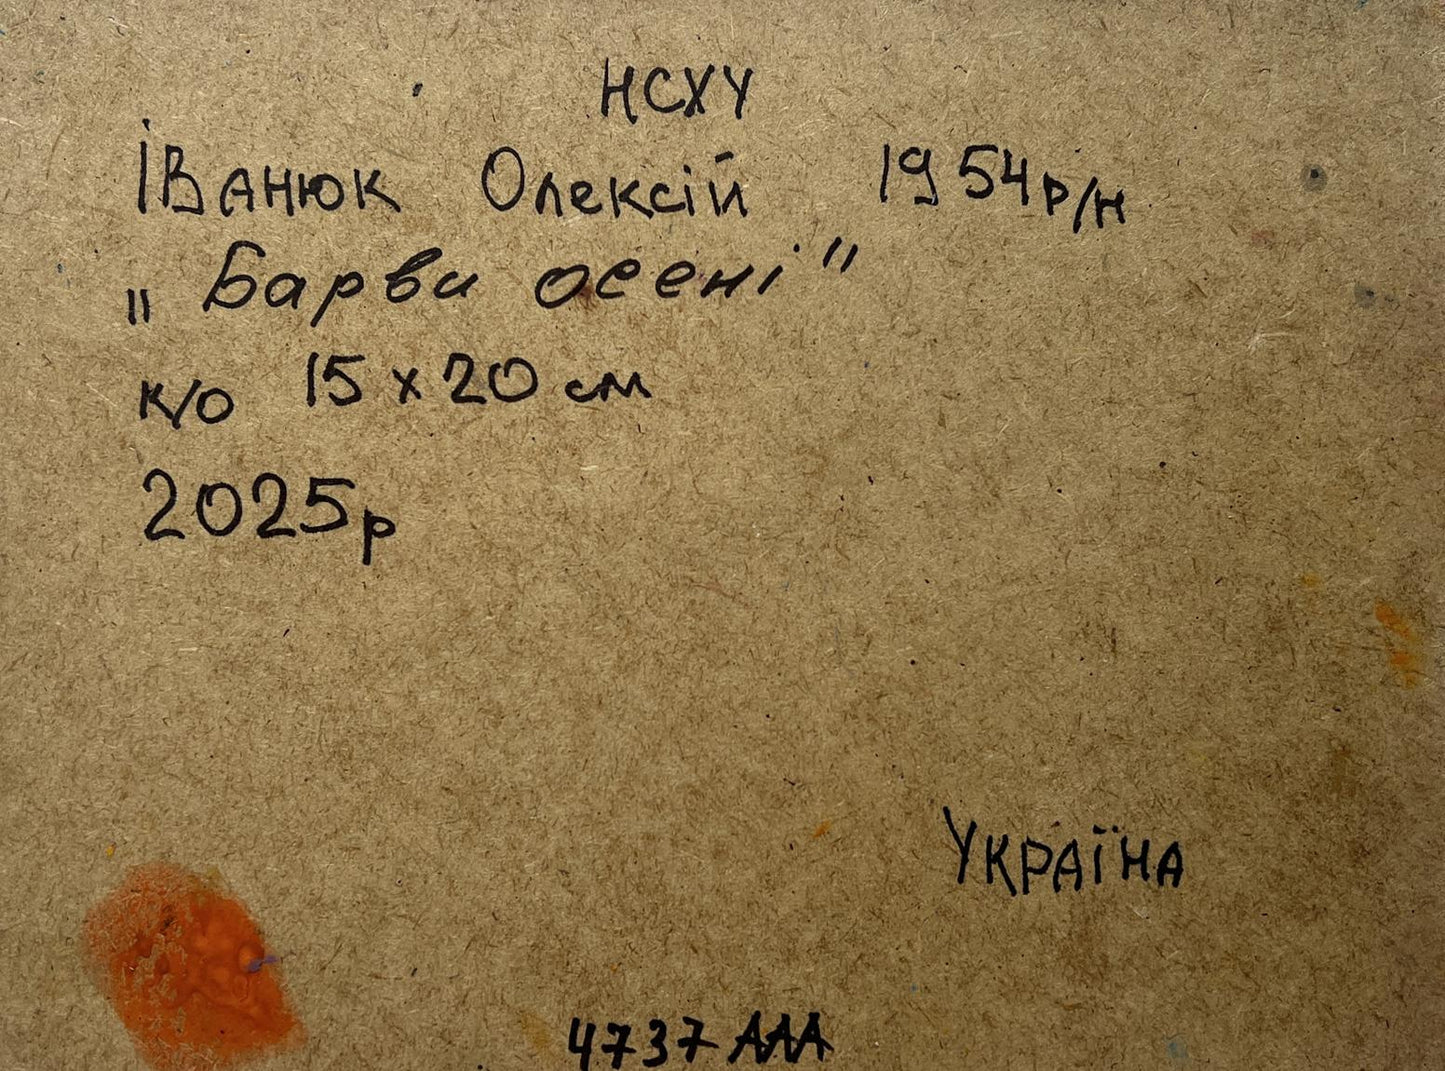 НСХУ
Іванюк Олексій 1954 р/н
„Барви осені"
к/о 15 х 20 см
2025р
УКРАЇНА
4737 ААА